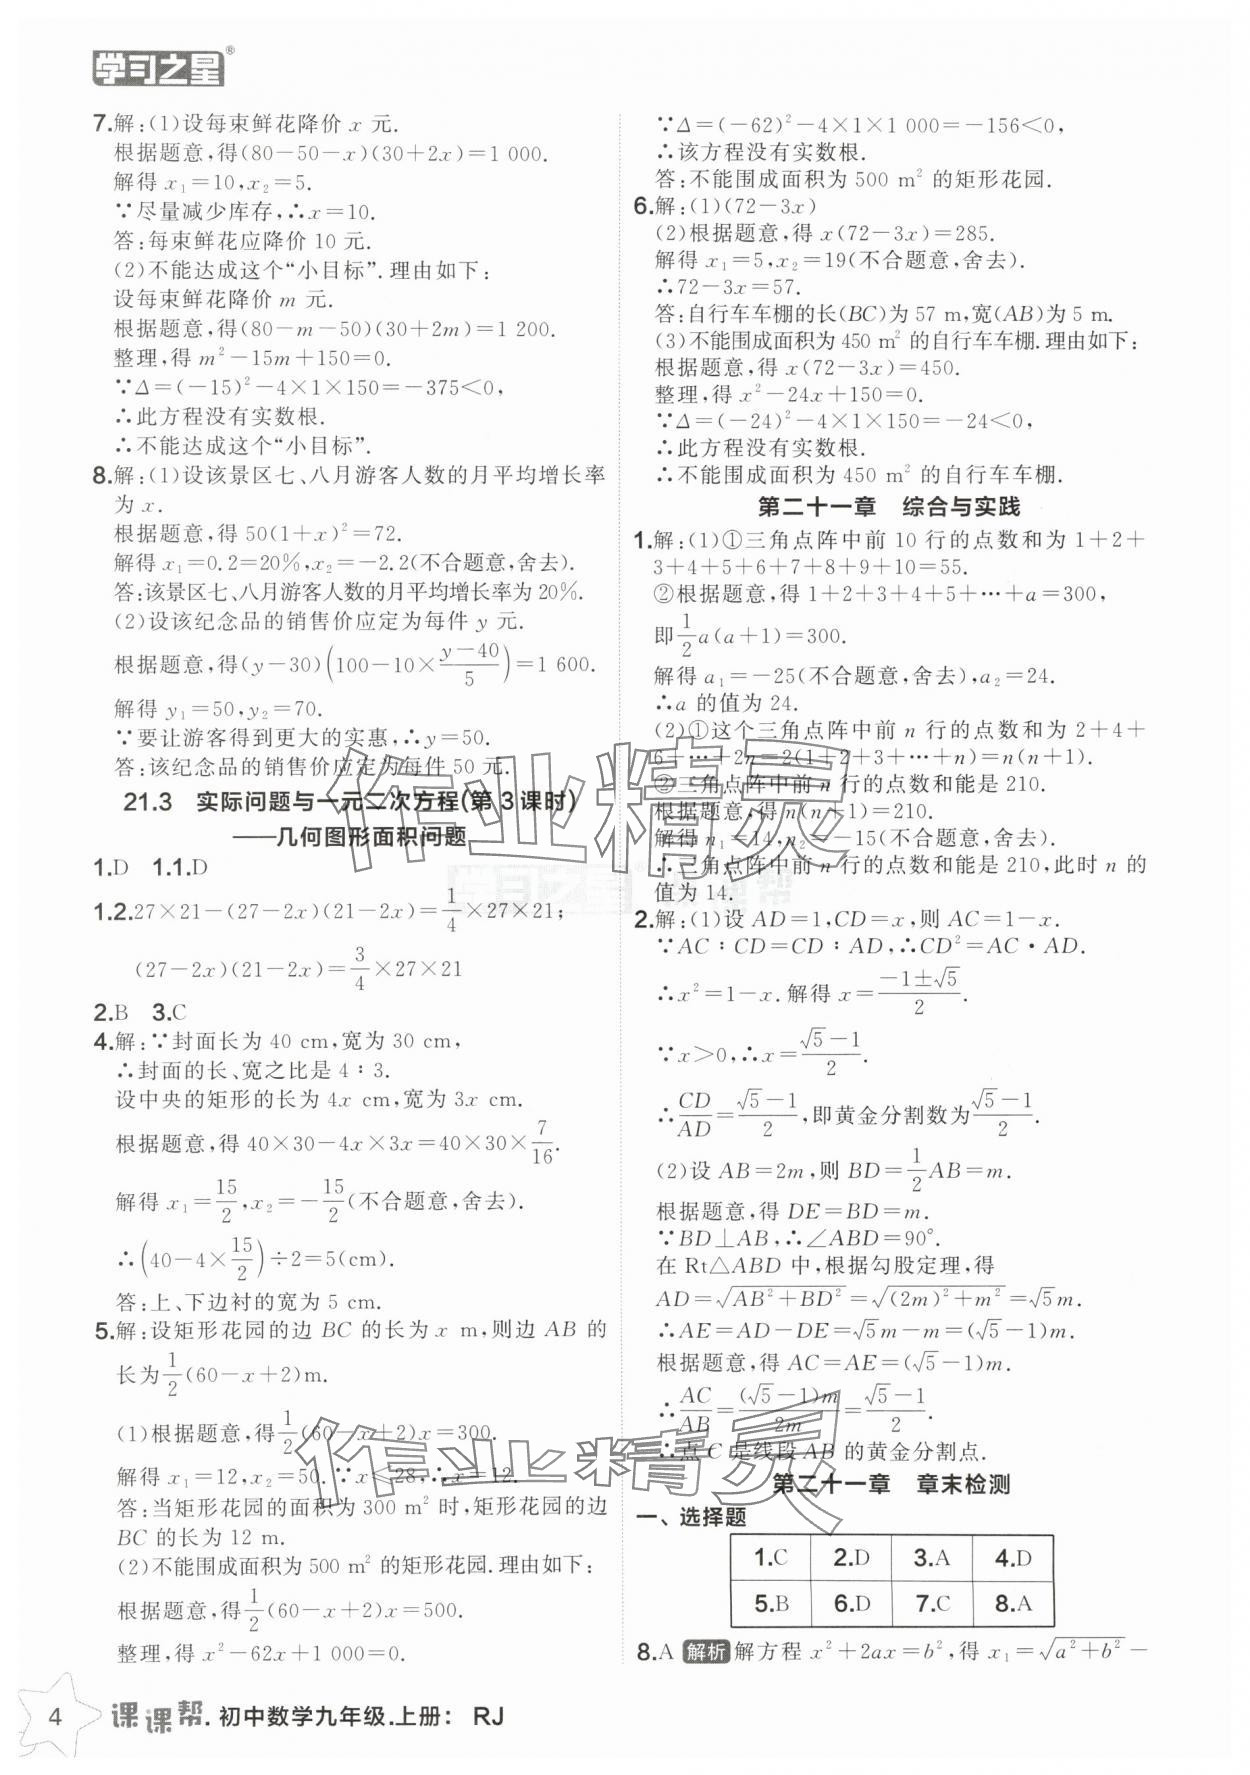 学习之星®
7.解:(1)设每束鲜花降价 x 元.
根据题意,得(80-50-x)(30+2x)=1 000.
解得 x₁=10,x₂=5.
∵尽量减少库存,∴x=10.
答:每束鲜花应降价 10 元.
(2)不能达成这个“小目标”.理由如下:
设每束鲜花降价 m 元.
根据题意,得(80-m-50)(30+2m)=1 200.
整理,得 m²-15m+150=0.
∵Δ=(-15)²-4×1×150=-375<0,
∴此方程没有实数根.
∴不能达成这个“小目标”.
8.解:(1)设该景区七、八月游客人数的月平均增长率
为 x.
根据题意,得 50(1+x)²=72.
解得 x₁=0.2=20%,x₂=-2.2(不合题意,舍去).
答:该景区七、八月游客人数的月平均增长率为 20%.
(2)设该纪念品的销售价应定为每件 y 元.
根据题意,得(y-30)(100-10×(y-40)/5)=1 600.
解得 y₁=50,y₂=70.
∵要让游客得到更大的实惠,∴y=50.
答:该纪念品的销售价应定为每件 50 元.
21.3 实际问题与一元二次方程(第 3 课时)
——几何图形面积问题
1.D 1.1.D
1.2.27×21-(27-2x)(21-2x)=1/4×27×21;
(27-2x)(21-2x)=3/4×27×21
2.B 3.C
4.解:∵封面长为 40 cm,宽为 30 cm,
∴封面的长、宽之比是 4∶3.
设中央的矩形的长为 4x cm,宽为 3x cm.
根据题意,得 40×30-4x×3x=40×30×7/16.
解得 x₁=15/2,x₂=-15/2(不合题意,舍去).
∴(40-4×15/2)÷2=5(cm).
答:上、下边衬的宽为 5 cm.
5.解:设矩形花园的边 BC 的长为 x m,则边 AB 的
长为1/2(60-x+2)m.
(1)根据题意,得1/2(60-x+2)x=300.
解得 x₁=12,x₂=50.∵x≤28,∴x=12.
答:当矩形花园的面积为 300 m² 时,矩形花园的边
BC 的长为 12 m.
(2)不能围成面积为 500 m² 的矩形花园.理由如下:
根据题意,得1/2(60-x+2)x=500.
整理,得 x²-62x+1 000=0.
∵Δ=(-62)²-4×1×1 000=-156<0,
∴该方程没有实数根.
答:不能围成面积为 500 m² 的矩形花园.
6.解:(1)(72-3x)
(2)根据题意,得 x(72-3x)=285.
解得 x₁=5,x₂=19(不合题意,舍去).
∴72-3x=57.
答:自行车车棚的长(BC)为 57 m,宽(AB)为 5 m.
(3)不能围成面积为 450 m² 的自行车车棚.理由如下:
根据题意,得 x(72-3x)=450.
整理,得 x²-24x+150=0.
∵Δ=(-24)²-4×1×150=-24<0,
∴此方程没有实数根.
∴不能围成面积为 450 m² 的自行车车棚.
第二十一章 综合与实践
1.解:(1)①三角点阵中前 10 行的点数和为 1+2+
3+4+5+6+7+8+9+10=55.
②根据题意,得 1+2+3+4+5+…+a=300,
即1/2a(a+1)=300.
解得 a₁=-25(不合题意,舍去),a₂=24.
∴a 的值为 24.
(2)①这个三角点阵中前 n 行的点数和为 2+4+
6+…+2n=2(1+2+3+…+n)=n(n+1).
②三角点阵中前 n 行的点数和能是 210.
根据题意,得 n(n+1)=210.
解得 n₁=14,n₂=-15(不合题意,舍去).
∴三角点阵中前 n 行的点数和能是 210,此时 n 的
值为 14.
2.解:(1)设 AD=1,CD=x,则 AC=1-x.
∵AC∶CD=CD∶AD,∴CD²=AC·AD.
∴x²=1-x.解得 x=(-1±√5)/2.
∵x>0,∴x=(√5-1)/2.
∴CD/AD=(√5-1)/2,即黄金分割数为(√5-1)/2.
(2)设 AB=2m,则 BD=1/2AB=m.
根据题意,得 DE=BD=m.
∵BD⊥AB,∴∠ABD=90°.
在 Rt△ABD 中,根据勾股定理,得
AD=√(AB²+BD²)=√((2m)²+m²)=√5m.
∴AE=AD-DE=√5m-m=(√5-1)m.
根据题意,得 AC=AE=(√5-1)m.
∴AC/AB=(√5-1)m/2m=(√5-1)/2.
∴点 C 是线段 AB 的黄金分割点.
第二十一章 章末检测
一、选择题
1.C 2.D 3.A 4.D
5.B 6.D 7.C 8.A
8.A 解析 解方程 x²+2ax=b²,得 x₁=√(a²+b²)-
4 课课帮.初中数学九年级.上册: RJ
作业精灵
学习之星® 课课帮
作业精灵